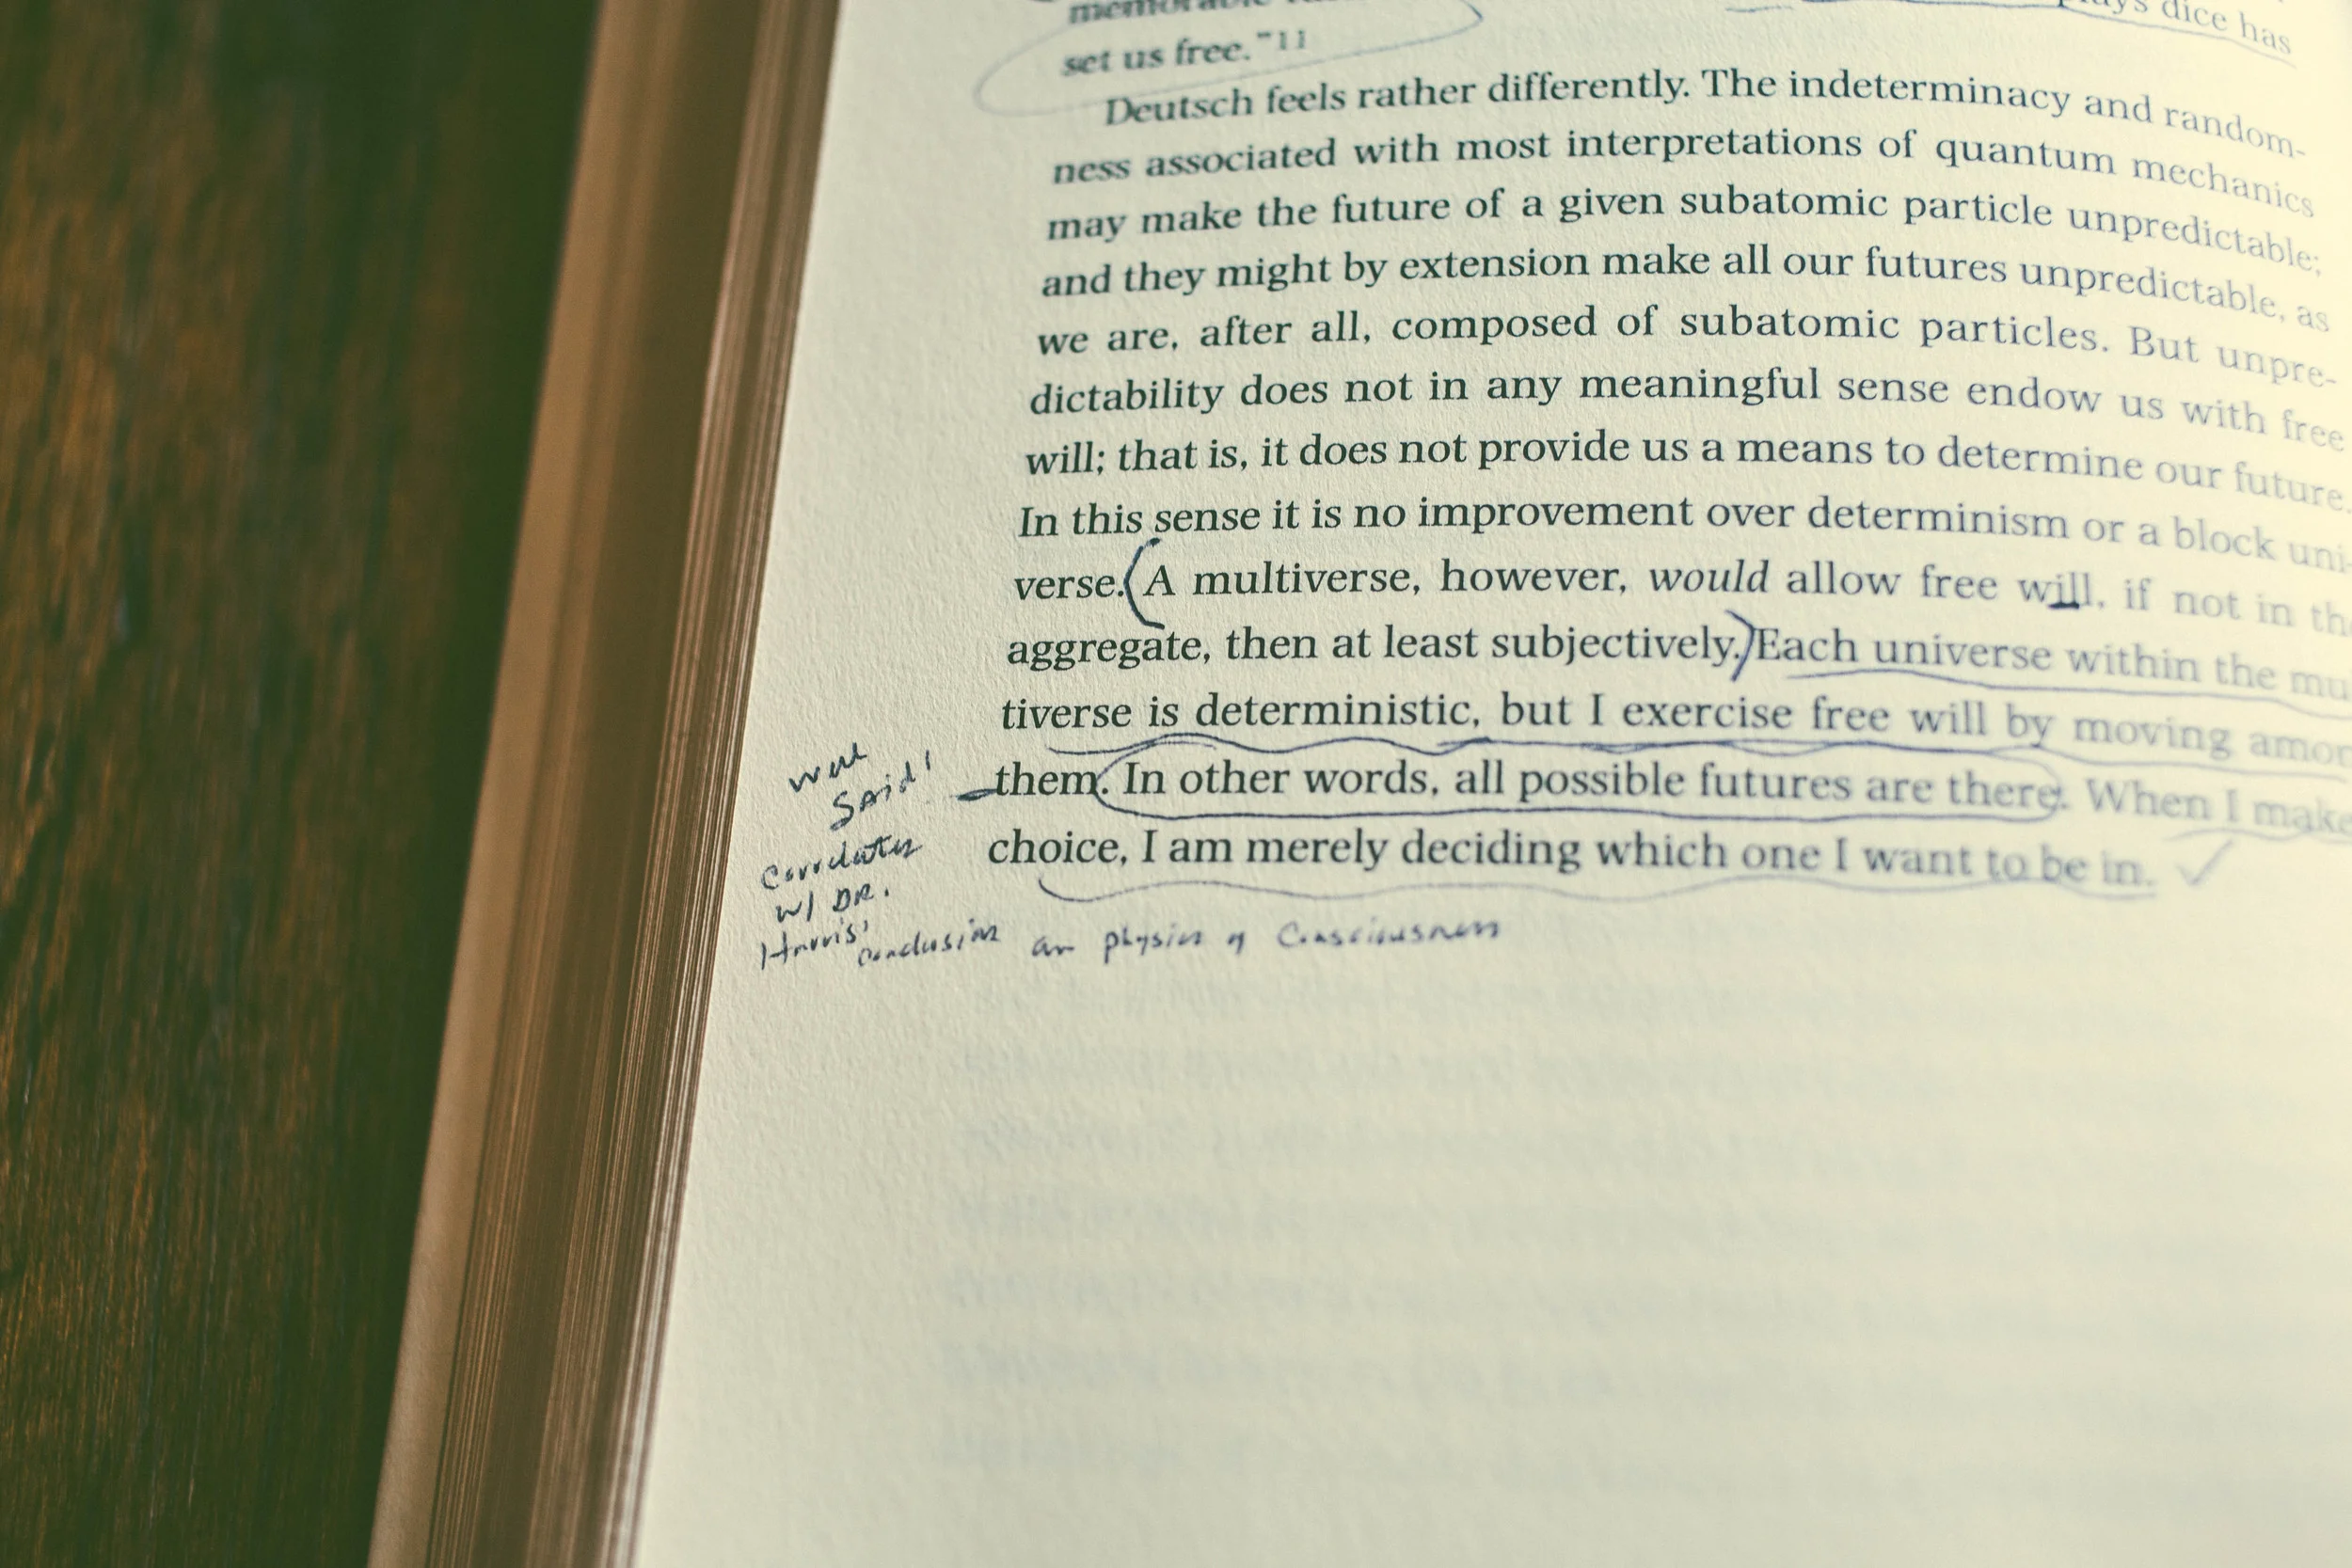 set us free."11
plays dice has
Deutsch feels rather differently. The indeterminacy and random-
ness associated with most interpretations of quantum mechanics
may make the future of a given subatomic particle unpredictable;
and they might by extension make all our futures unpredictable, as
we are, after all, composed of subatomic particles. But unpre-
dictability does not in any meaningful sense endow us with free
will; that is, it does not provide us a means to determine our future.
In this sense it is no improvement over determinism or a block uni-
verse. A multiverse, however, would allow free will, if not in the
aggregate, then at least subjectively. Each universe within the mu
tiverse is deterministic, but I exercise free will by moving amon
them. In other words, all possible futures are there. When I make
choice, I am merely deciding which one I want to be in.
well
said!
correlates
w/ DR.
Harris'
conclusion on physics of Consciousness